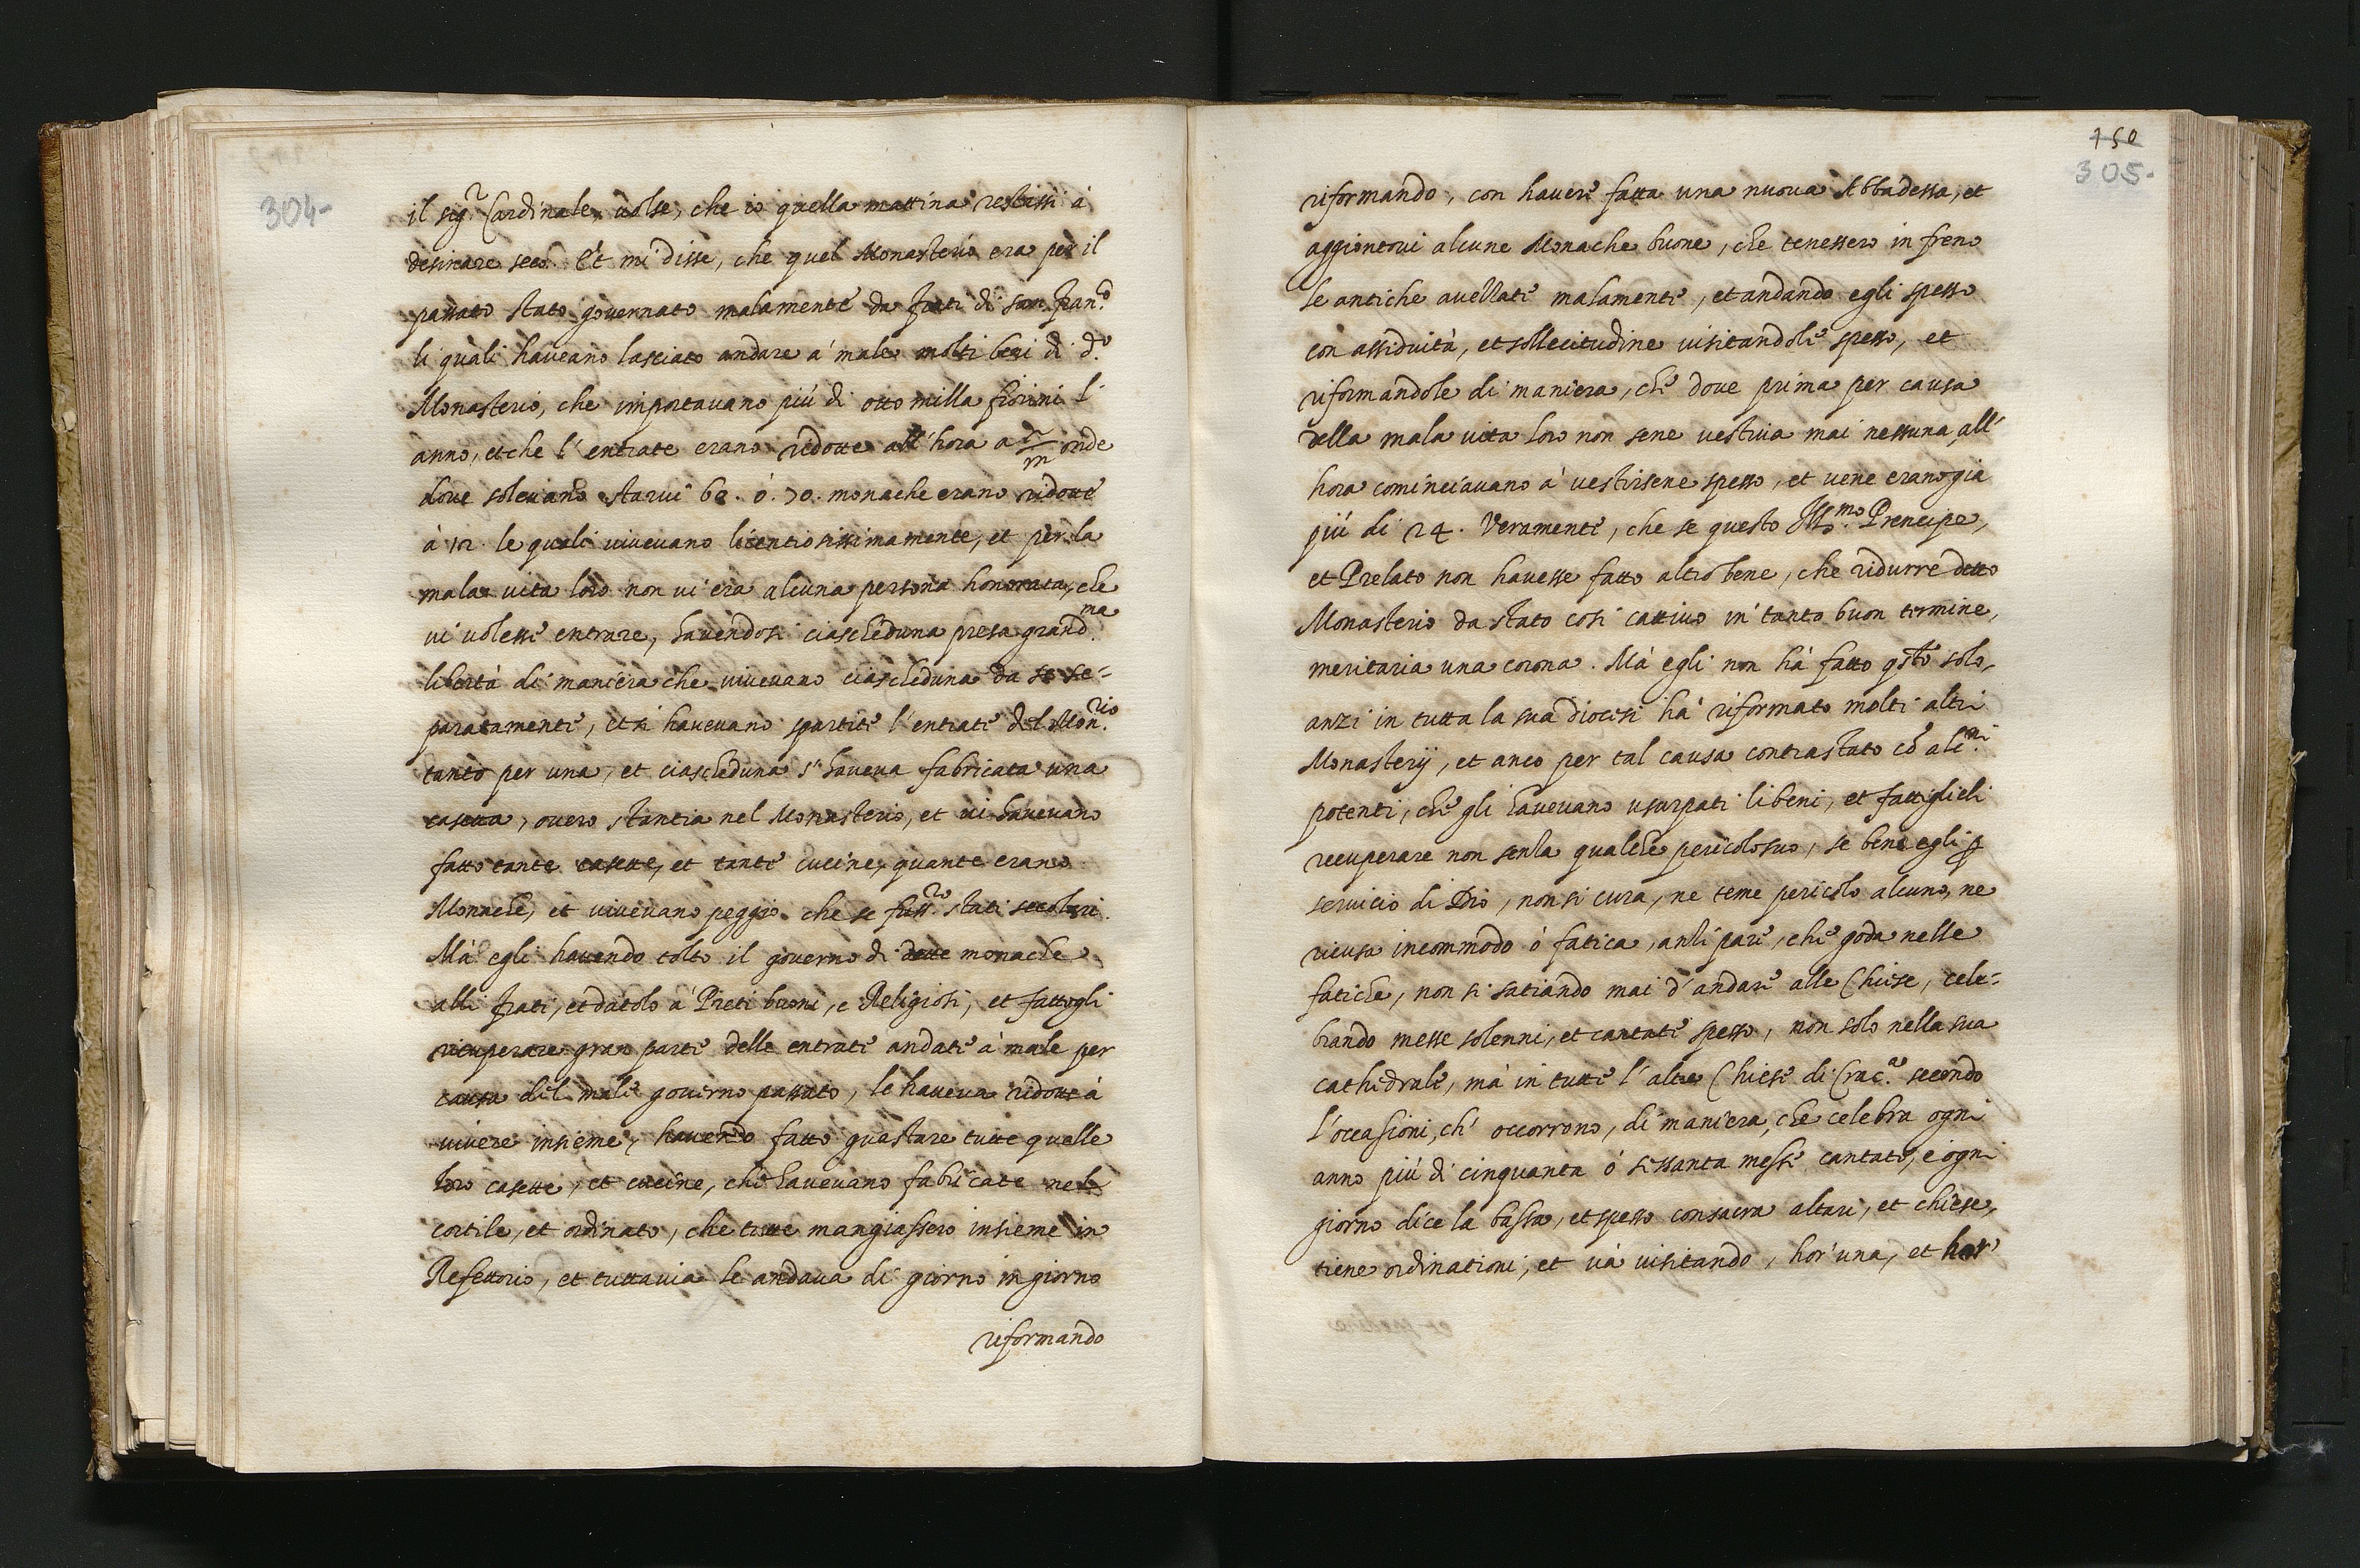 304-
il sig.r Cardinale volse, che io quella mattina restassi à
desinare seco. Et mi disse, che quel Monasterio era per il
passato stato governato malamente da frati di san Fran.co
li quali haveano lasciato andare a' male molti beni di d.o
Monasterio, che importavano più di otto milla fiorini l'
anno, et che l'entrate erano ridotte all'hora a onde
dove solevano starvi 60. ò. 70. monache erano ridotte
à 12. le quali vivevano licentiosissimamente, et per la
mala vita loro non vi era alcuna persona honorata, che
vi volesse entrare, havendosi ciascheduna presa grand.ma
libertà di maniera che vivevano ciascheduna da se se=
paratamente, et si havevano spartite l'entrate del Mon.rio
tanto per una, et ciascheduna s'haveva fabricata una
casetta, overo stantia nel Monasterio, et vi havevano
fatto tante casette, et tante cucine, quante erano
Monache, et vivevano peggio che se fuss.ro stati secolari.
Mà egli havendo tolto il governo di dette monache
alli frati, et datolo a' Preti buoni, e Religiosi, et fattogli
ricuperare gran parte delle entrate andate a' male per
causa del male governo passato, le haveva ridotte à
vivere insieme, havendo fatto guastare tutte quelle
loro casette, et cucine, che havevano fabricate nel
cortile, et ordinato, che tutte mangiassero insieme in
Refettorio, et tuttavia le andava di giorno in giorno
riformando
150
305-
riformando, con havere fatta una nuova Abbadessa, et
aggiontovi alcune Monache buone, che tenessero in freno
le antiche avezzate malamente, et andando egli spesso
con assiduità, et sollecitudine visitandole spesso, et
riformandole di maniera, che dove prima per causa
della mala vita loro non sene vestiva mai nessuna, all'
hora cominciavano à vestirsene spesso, et vene erano gia
più di 24. Veramente, che se questo Ill.mo Prencipe,
et Prelato non havesse fatto altro bene, che ridurre detto
Monasterio da stato cosi cattivo in tanto buon termine,
meritaria una corona. Mà egli non hà fatto q.sto solo,
anzi in tutta la sua diocesi ha' riformato molti altri
Monasterij, et anco per tal causa contrastato cõ alc.ni
potenti, che gli havevano usurpati li beni, et fattiglieli
recuperare non senza qualche pericolo suo, se bene egli p
servicio di Dio, non si cura, ne teme pericolo alcuno, ne
ricusa incommodo ò fatica, anzi pare, che goda nelle
fatiche, non si satiando mai d'andare alle Chiese, cele=
brando messe solenni, et cantate spesso, non solo nella sua
cathedrale, mà in tutte l'altre Chiese di Crac.a secondo
l'occasioni, ch' occorrono, di maniera, che celebra ogni
anno più di cinquanta ò sessanta messe cantate, e ogni
giorno dice la bassa, et spesso consacra altari, et chiese,
tiene ordinationi, et và visitando, hor' una, et hor'